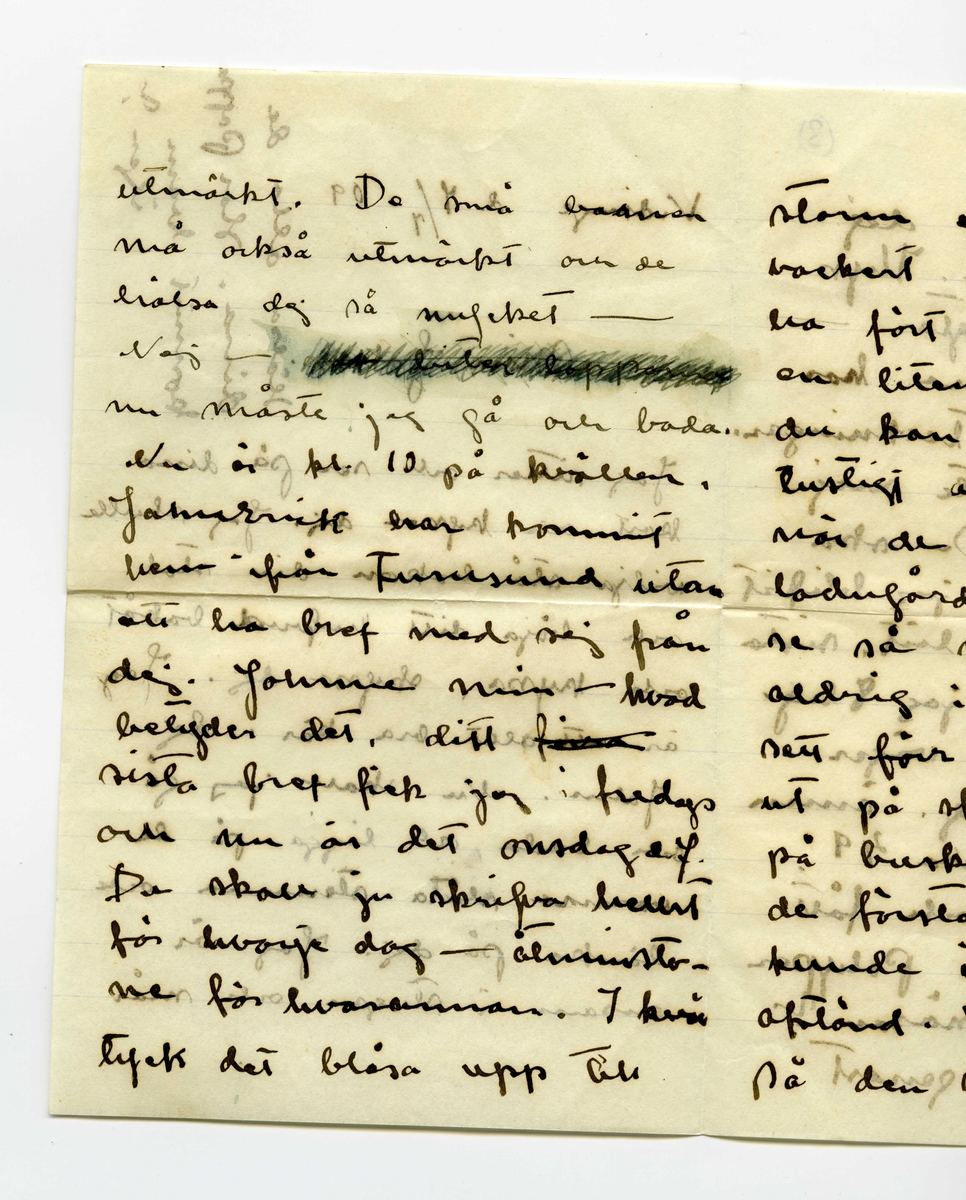 utmärkt. De små barnen
må också utmärkt och de
hälsa dej så mycket —
Nej —
nu måste jag gå och bada.
Nu är kl. 10 på kvällen.
har kommit
hem ifrån Furusund utan
att ha bref med sej från
dej. min — hvad
betyder det, ditt
sista bref fick jag i fredags
och nu är det onsdag
Du skall ju skrifva helst
för hvarje dag — åtminsto-
ne för hvarannan. I kvä
tyck det blåsa upp till
storm
vackert
ha fört
en liten
du kan
lustigt
när de
ladugård
se så
aldrig i
sett förr
ut på
på busk
de första
kunde
afstånd.
På den